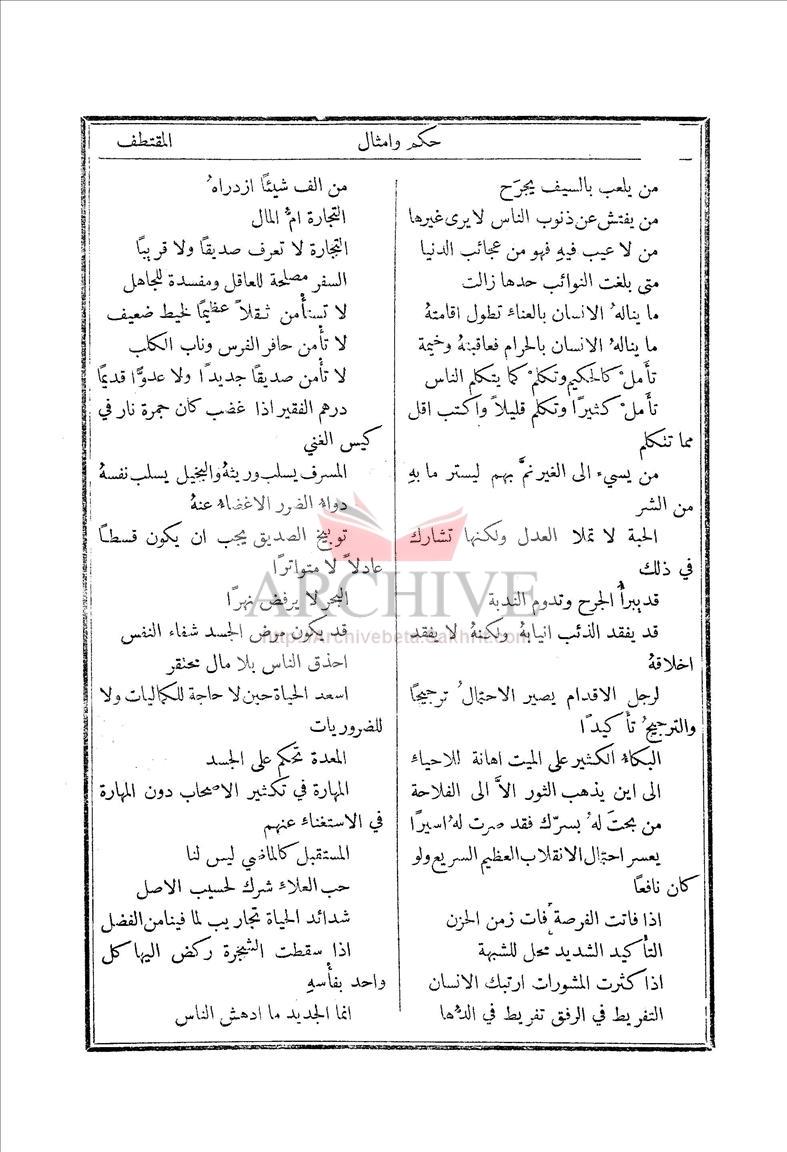 حكم وامثال
المقتطف
من يلعب بالسيف يجرَح
من يفتش عن ذنوب الناس لا يرى غيرها
من لا عيب فيهِ فهو من عجائب الدنيا
متى بلغت النوائب حدها زالت
ما ينالهُ الانسان بالعناء تطول اقامتهُ
ما ينالهُ الانسان بالحرام فعاقبتهُ وخيمة
تأملْ كالحكيم وتكلمْ كما يتكلم الناس
تأملْ كثيرًا وتكلم قليلاً واكتب اقل
مما تتكلم
من يسيء الى الغير نمَّ بهم ليستر ما بهِ
من الشر
الحبة لا تملا العدل ولكنها تشارك
في ذلك
قد يبرأُ الجرح وتدوم الندبة
قد يفقد الذئب انيابهُ ولكنهُ لا يفقد
اخلاقهُ
لرجل الاقدام يصير الاحتمالُ ترجيحًا
والترجيحُ تأكيدًا
البكاء الكثير على الميت اهانة للاحياء
الى اين يذهب الثور الاَّ الى الفلاحة
من بحتَ لهُ بسرّك فقد صرت لهُ اسيرًا
يعسر احتمال الانقلاب العظيم السريع ولو
كان نافعًا
اذا فاتت الفرصة فات زمن الحزن
التأكيد الشديد محل للشبهة
اذا كثرت المشورات ارتبك الانسان
التفريط في الرفق تفريط في الدُّها
من الف شيئًا ازدراهُ
التجارة امُّ المال
التجارة لا تعرف صديقًا ولا قريبًا
السفر مصلحة للعاقل ومفسدة للجاهل
لا تستأمن ثقلاً عظيمًا لخيط ضعيف
لا تأمن حافر الفرس وناب الكلب
لا تأمن صديقًا جديدًا ولا عدوًّا قديمًا
درهم الفقير اذا غضب كان جمرة نار في
كيس الغني
المسرف يسلب وريثهُ والبخيل يسلب نفسهُ
دواء الضرر الاغضاء عنهُ
توبيخ الصديق يجب ان يكون قسطًا
عادلاً لا متواترًا
البحر لا يرفض نهرًا
قد يكون مرض الجسد شفاء النفس
احذق الناس بلا مال محتقر
اسعد الحياة حين لا حاجة للكماليات ولا
للضروريات
المعدة تحكم على الجسد
المهارة في تكثير الاصحاب دون المهارة
في الاستغناء عنهم
المستقبل كالماضي ليس لنا
حب العلاء شرك لحسيب الاصل
شدائد الحياة تجاريب لما فينا من الفضل
اذا سقطت الشجرة ركض اليها كل
واحد بفأسهِ
انما الجديد ما ادهش الناس
ARCHIVE
http://Archivebeta.Sakhrit.com